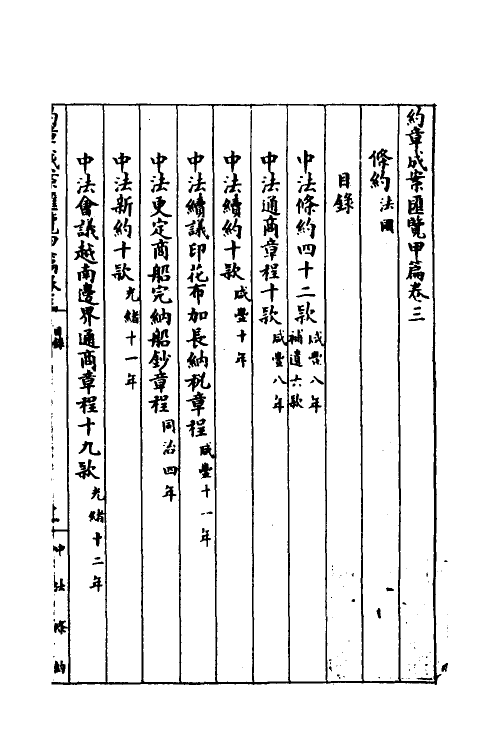 約章成案匯覽甲篇卷三
條約法國
目錄
中法條約四十二款咸豐八年補遺六款
中法通商章程十款咸豐八年
中法續約十款咸豐十年
中法續議印花布加長納稅章程咸豐十一年
中法更定商船完納船鈔章程同治四年
中法新約十款光緒十一年
中法會議越南邊界通商章程十九款光緒十二年
約章成案匯覽甲篇卷三 目錄 中法條約